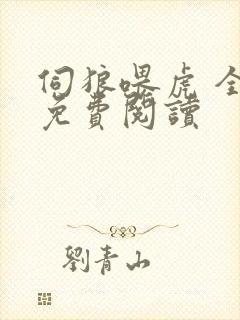 伺狼喂虎 全
免費閱讀
劉青山